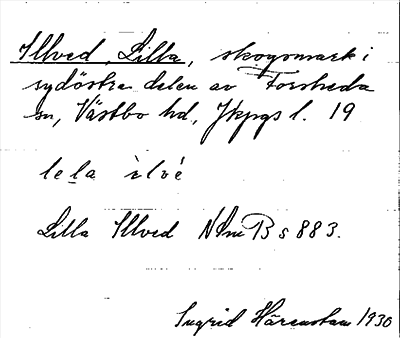 Illved, Lilla, skogsmark i
sydöstra delen av Forsheda
sn, Västbo hd, Jkpgs l. 19
lela ìlvé
Lilla Illved NSm B s 883.
Ingrid Härenstam 1930